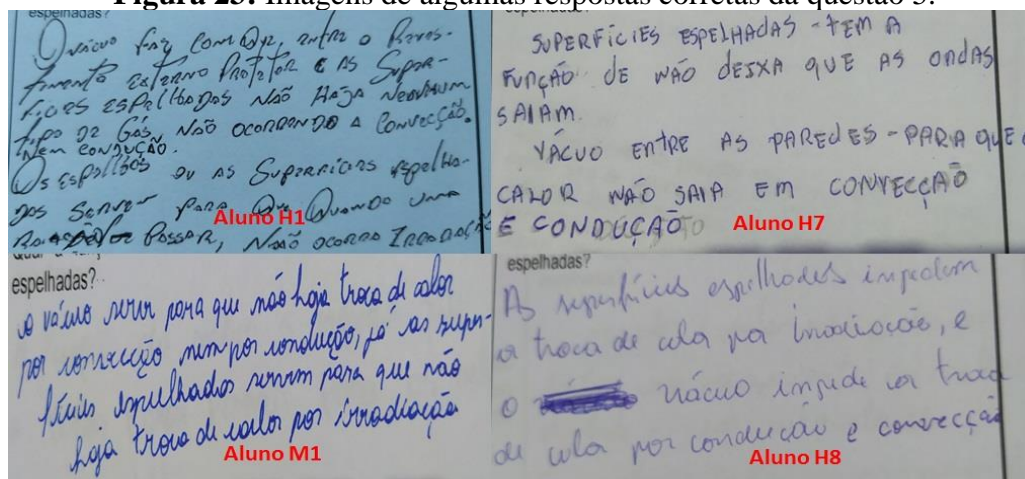 Figura 25: Imagens de algumas respostas corretas da questão 3.
espelhadas?
O vácuo faz com que, entre o Reves-
timento externo Protetor e as Super-
ficies espelhadas não Haja Nenhum
tipo de Gás, Não ocorrendo a Convecção.
Nem condução.
Os espelhos ou as Superficies espelha-
das Servem para Que Quando uma
Passar, Não ocorra Irradiação
Aluno H1
SUPERFÍCIES ESPELHADAS - TEM A
FUNÇÃO DE NÃO DEIXA QUE AS ONDAS
SAIAM.
VÁCUO ENTRE AS PAREDES - PARA QUE
CALOR NÃO SAIA EM CONVECÇAÕ
E CONDUÇAÕ
Aluno H7
espelhadas?
o vácuo serve para que não haja troca de calor
por convecção nem por condução, já as super-
fícies espelhadas servem para que não
haja troca de calor por irradiação
Aluno M1
espelhadas?
As superfícies espelhadas impedem
a troca de calor por irradiação, e
o vácuo impede a troca
de calor por condução e convecção
Aluno H8